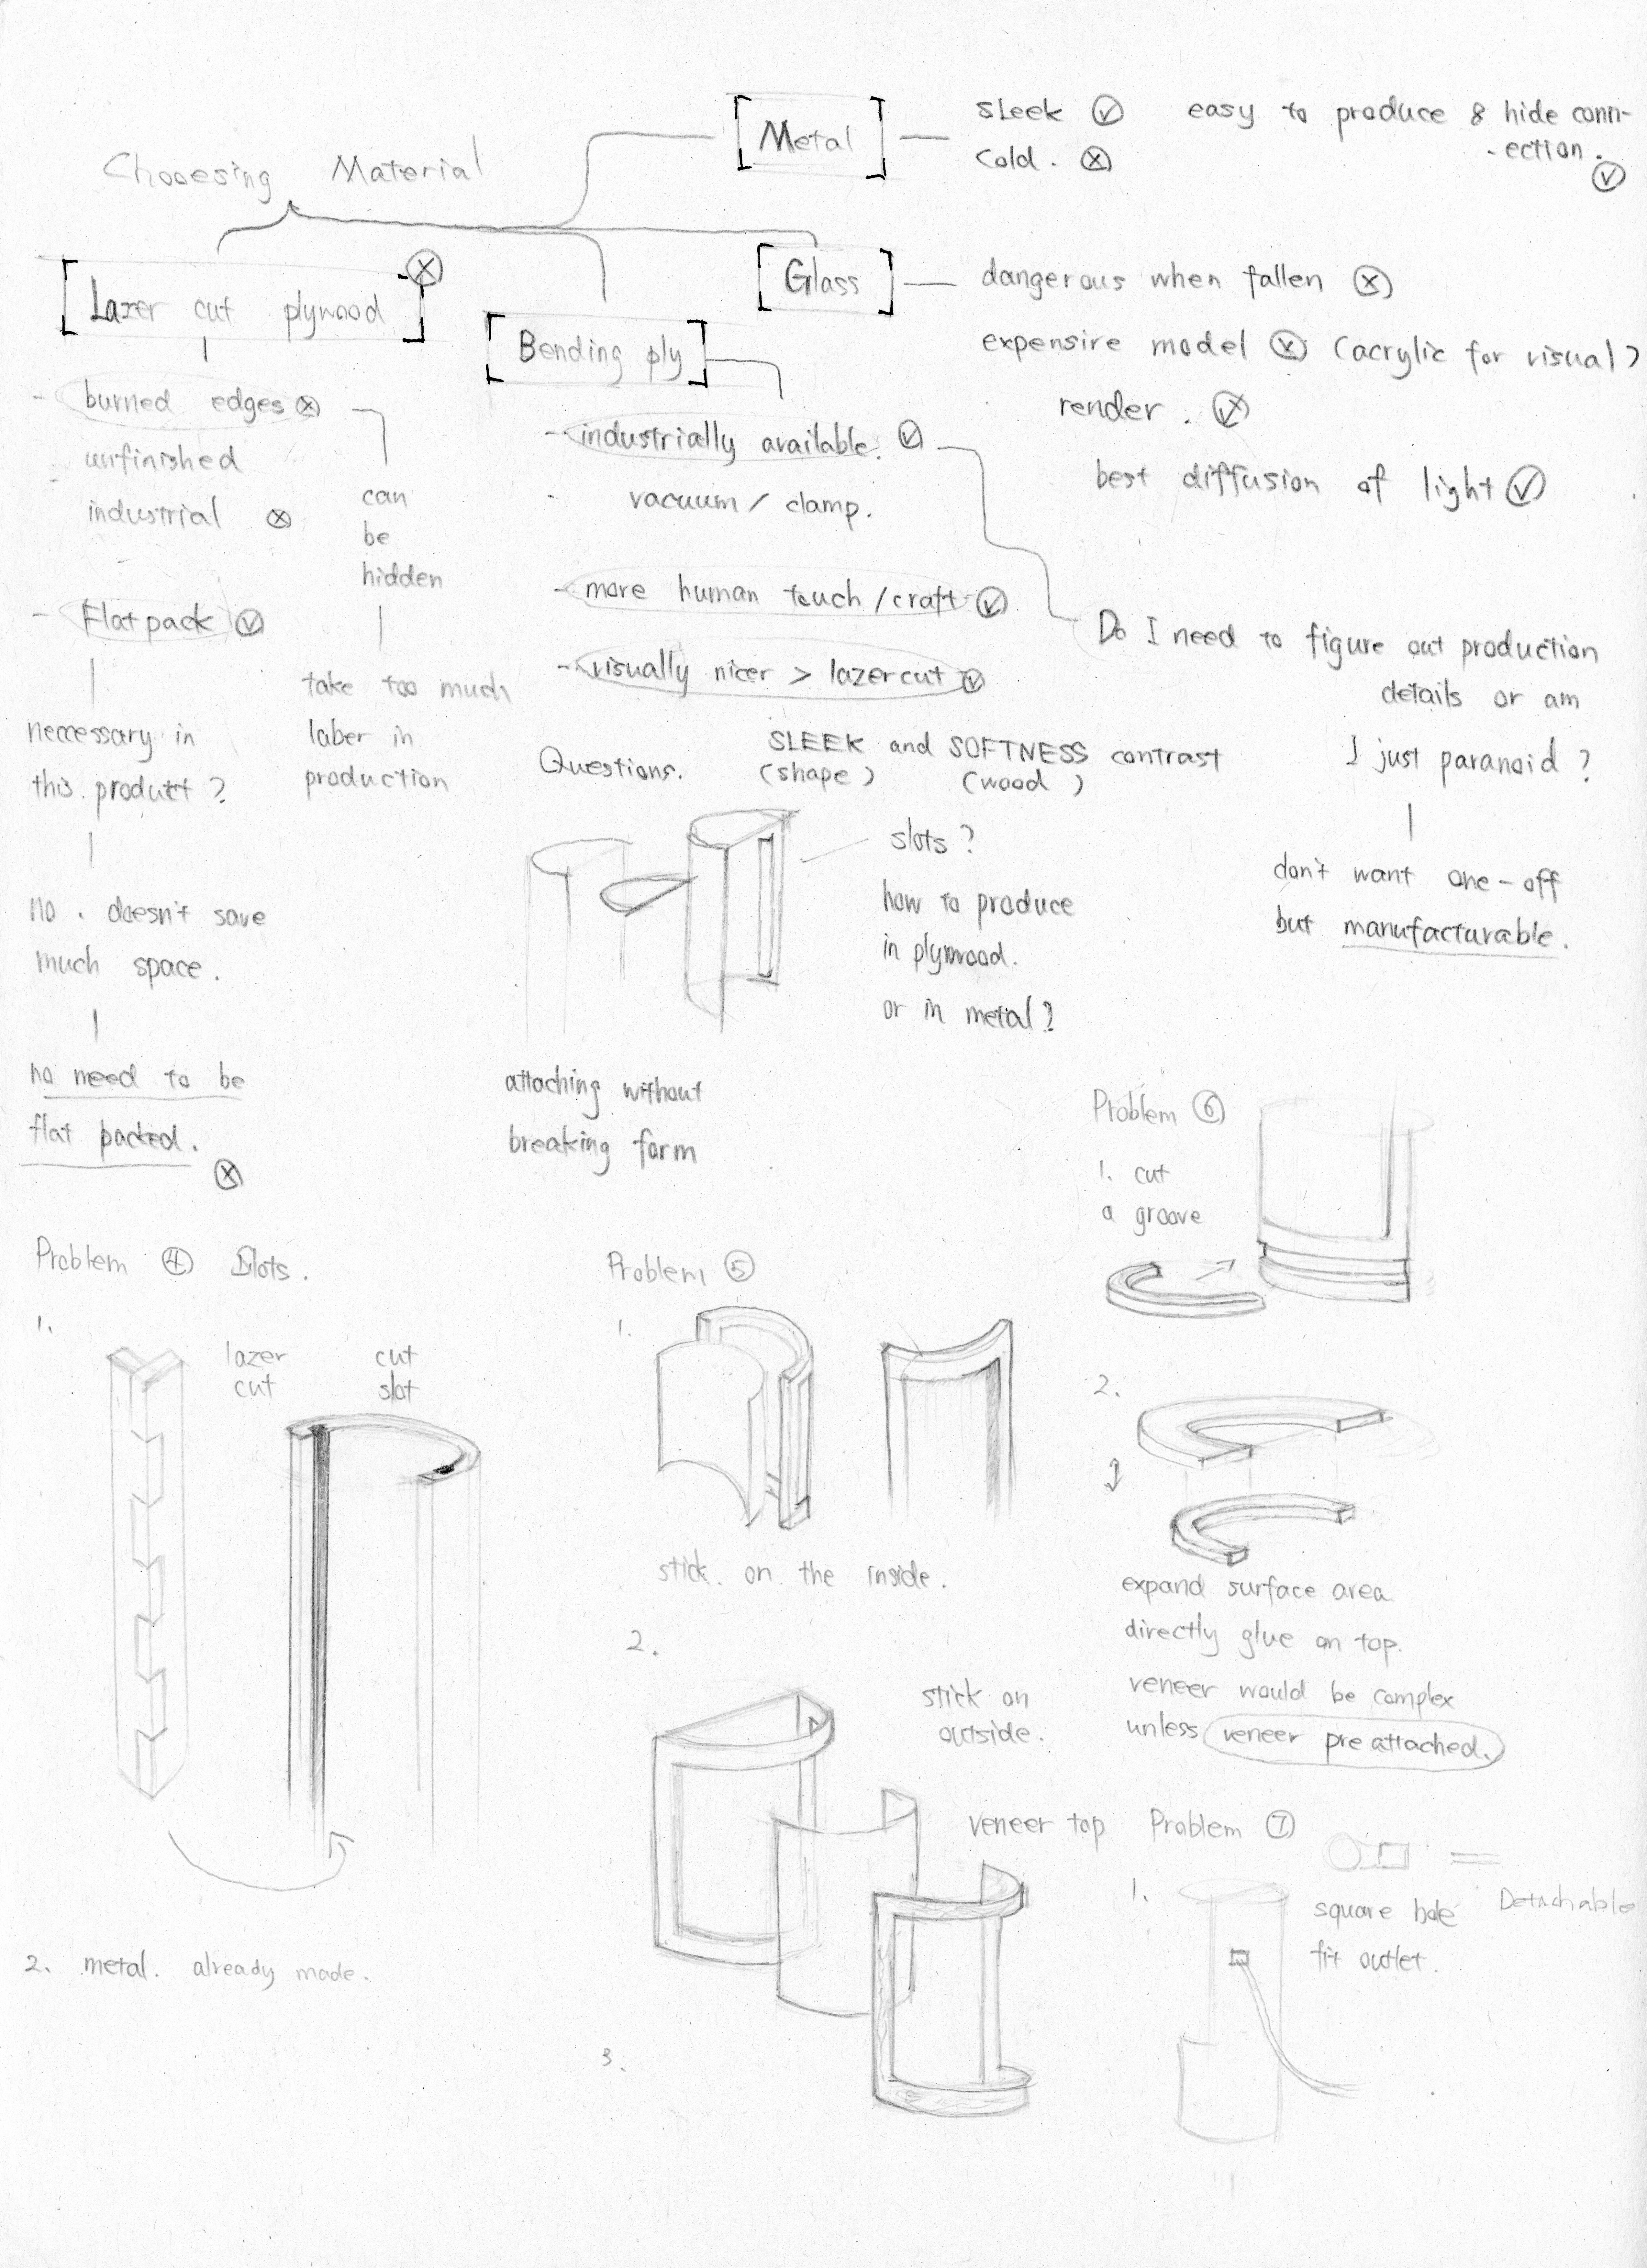 Chooesing Material
[Metal]
sleek ✓ easy to produce & hide conn-
cold. ✗ -ection. ✓
[Lazer cut plywood] ✗
- burned edges ✗
unfinished
industrial ✗
can
be
hidden
take too much
laber in
production
- Flatpack ✓
neccessary in
this product ?
no. doesn't save
much space.
no need to be
flat packed. ✗
[Bending ply]
- industrially available. ✓
- vacuum / clamp.
- more human touch / craft ✓
- visually nicer > lazercut ✓
[Glass]
dangerous when fallen ✗
expensire model (acrylic for visual)
render.
best diffusion of light ✓
Do I need to figure out production
details or am
I just paranoid ?
don't want one-off
but manufacturable.
Questions.
SLEEK and SOFTNESS contrast
(shape) (wood)
slots ?
how to produce
in plywood.
or in metal ?
attaching without
breaking form
Problem ④ Slots.
1.
lazer
cut
cut
slot
2. metal. already made.
Problem ⑤
1.
stick. on the inside.
2.
stick on
outside.
veneer top
3.
Problem ⑥
1. cut
a groove
2.
expand surface area
directly glue on top.
veneer would be complex
unless veneer pre attached.
Problem ⑦
1.
square hole
fit outlet.
Detachable